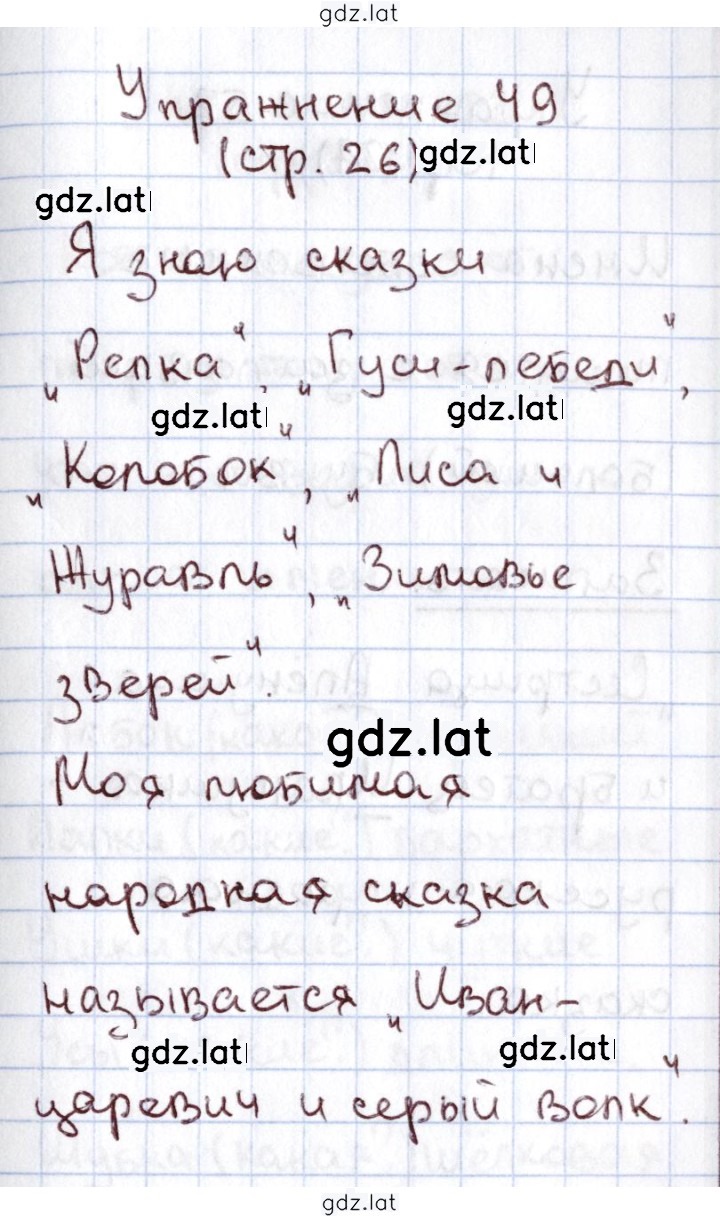 gdz.lat
Упражнение 49
(стр. 26) gdz.lat
gdz.lat
Я знаю сказки
„Репка“, „Гуси-лебеди“,
gdz.lat gdz.lat
„Колобок“, „Лиса и
Журавль“, „Зимовье
зверей“.
gdz.lat
Моя любимая
народная сказка
называется „Иван-
gdz.lat gdz.lat
царевич и серый волк“.
gdz.lat